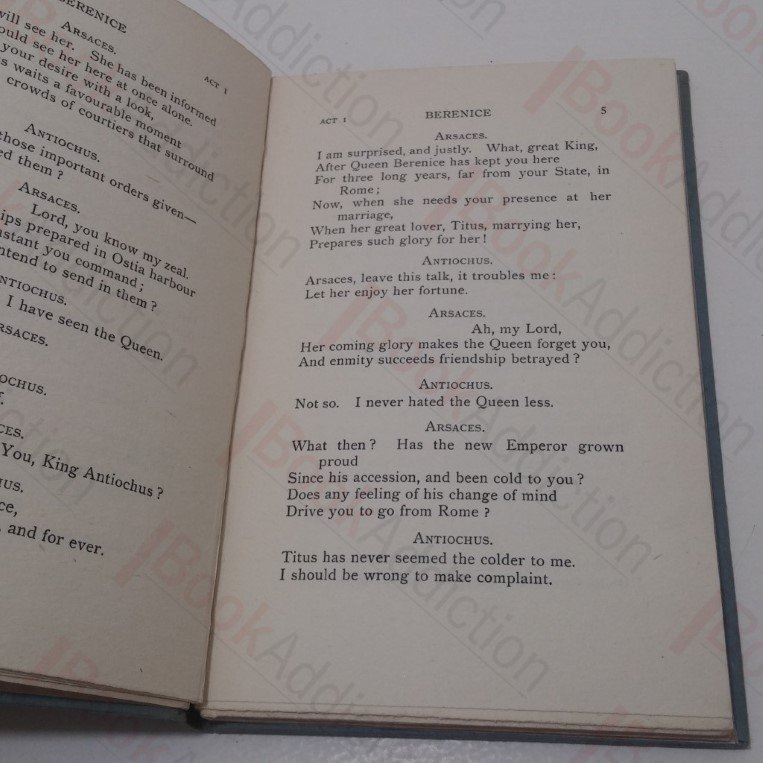 BERENICE
ARSACES.
will see her. She has been informed
would see her here at once alone.
your desire with a look,
waits a favourable moment
crowds of courtiers that surround
ACT 1
ANTIOCHUS.
those important orders given—
them?
ARSACES.
Lord, you know my zeal.
prepared in Ostia harbour
you command;
to send in them?
ANTIOCHUS.
I have seen the Queen.
You, King Antiochus?
and for ever.
ACT 1 BERENICE 5
ARSACES.
I am surprised, and justly. What, great King,
After Queen Berenice has kept you here
For three long years, far from your State, in
Rome;
Now, when she needs your presence at her
marriage,
When her great lover, Titus, marrying her,
Prepares such glory for her!
ANTIOCHUS.
Arsaces, leave this talk, it troubles me:
Let her enjoy her fortune.
ARSACES.
Ah, my Lord,
Her coming glory makes the Queen forget you,
And enmity succeeds friendship betrayed?
ANTIOCHUS.
Not so. I never hated the Queen less.
ARSACES.
What then? Has the new Emperor grown
proud
Since his accession, and been cold to you?
Does any feeling of his change of mind
Drive you to go from Rome?
ANTIOCHUS.
Titus has never seemed the colder to me.
I should be wrong to make complaint.
BookAddiction